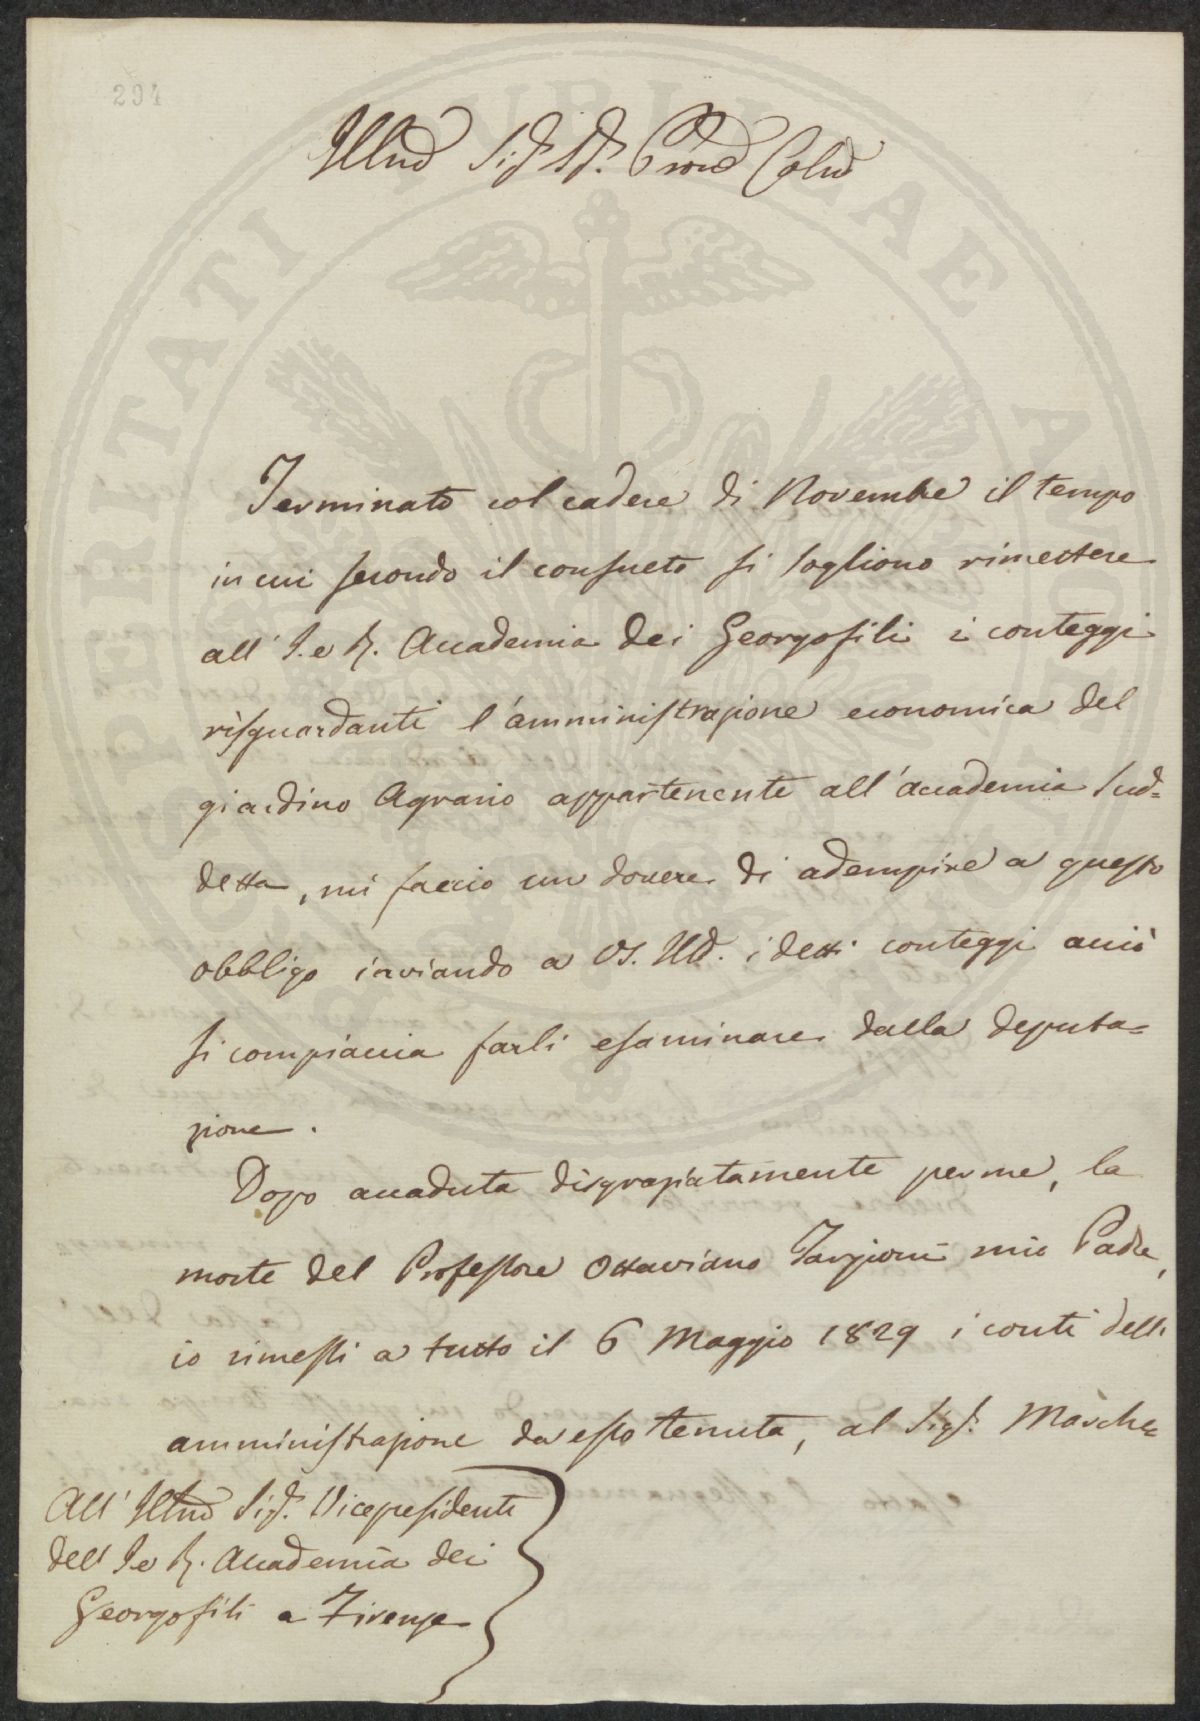 294
Illmo Sigr. Sigr. Prone Colmo
Terminato col cadere di Novembre il tempo
in cui secondo il consueto si sogliono rimettere
all' I. e R. Accademia dei Georgofili i conteggi
risguardanti l'amministrazione economica del
giardino Agrario appartenente all'accademia sud=
detta, mi faccio un dovere di adempire a questo
obbligo inviando a VS. Illma. i detti conteggi acciò
si compiaccia farli esaminare dalla deputa=
zione.
Dopo accaduta disgraziatamente per me, la
morte del Professore Ottaviano Targioni mio Padre,
io rimessi a tutto il 6 Maggio 1829 i conti dell'
amministrazione da esso tenuta, al Sigr. Marche=
All' Illmo Sigr. Vicepresidente
dell' I e R. Accademia dei
Georgofili a Firenze